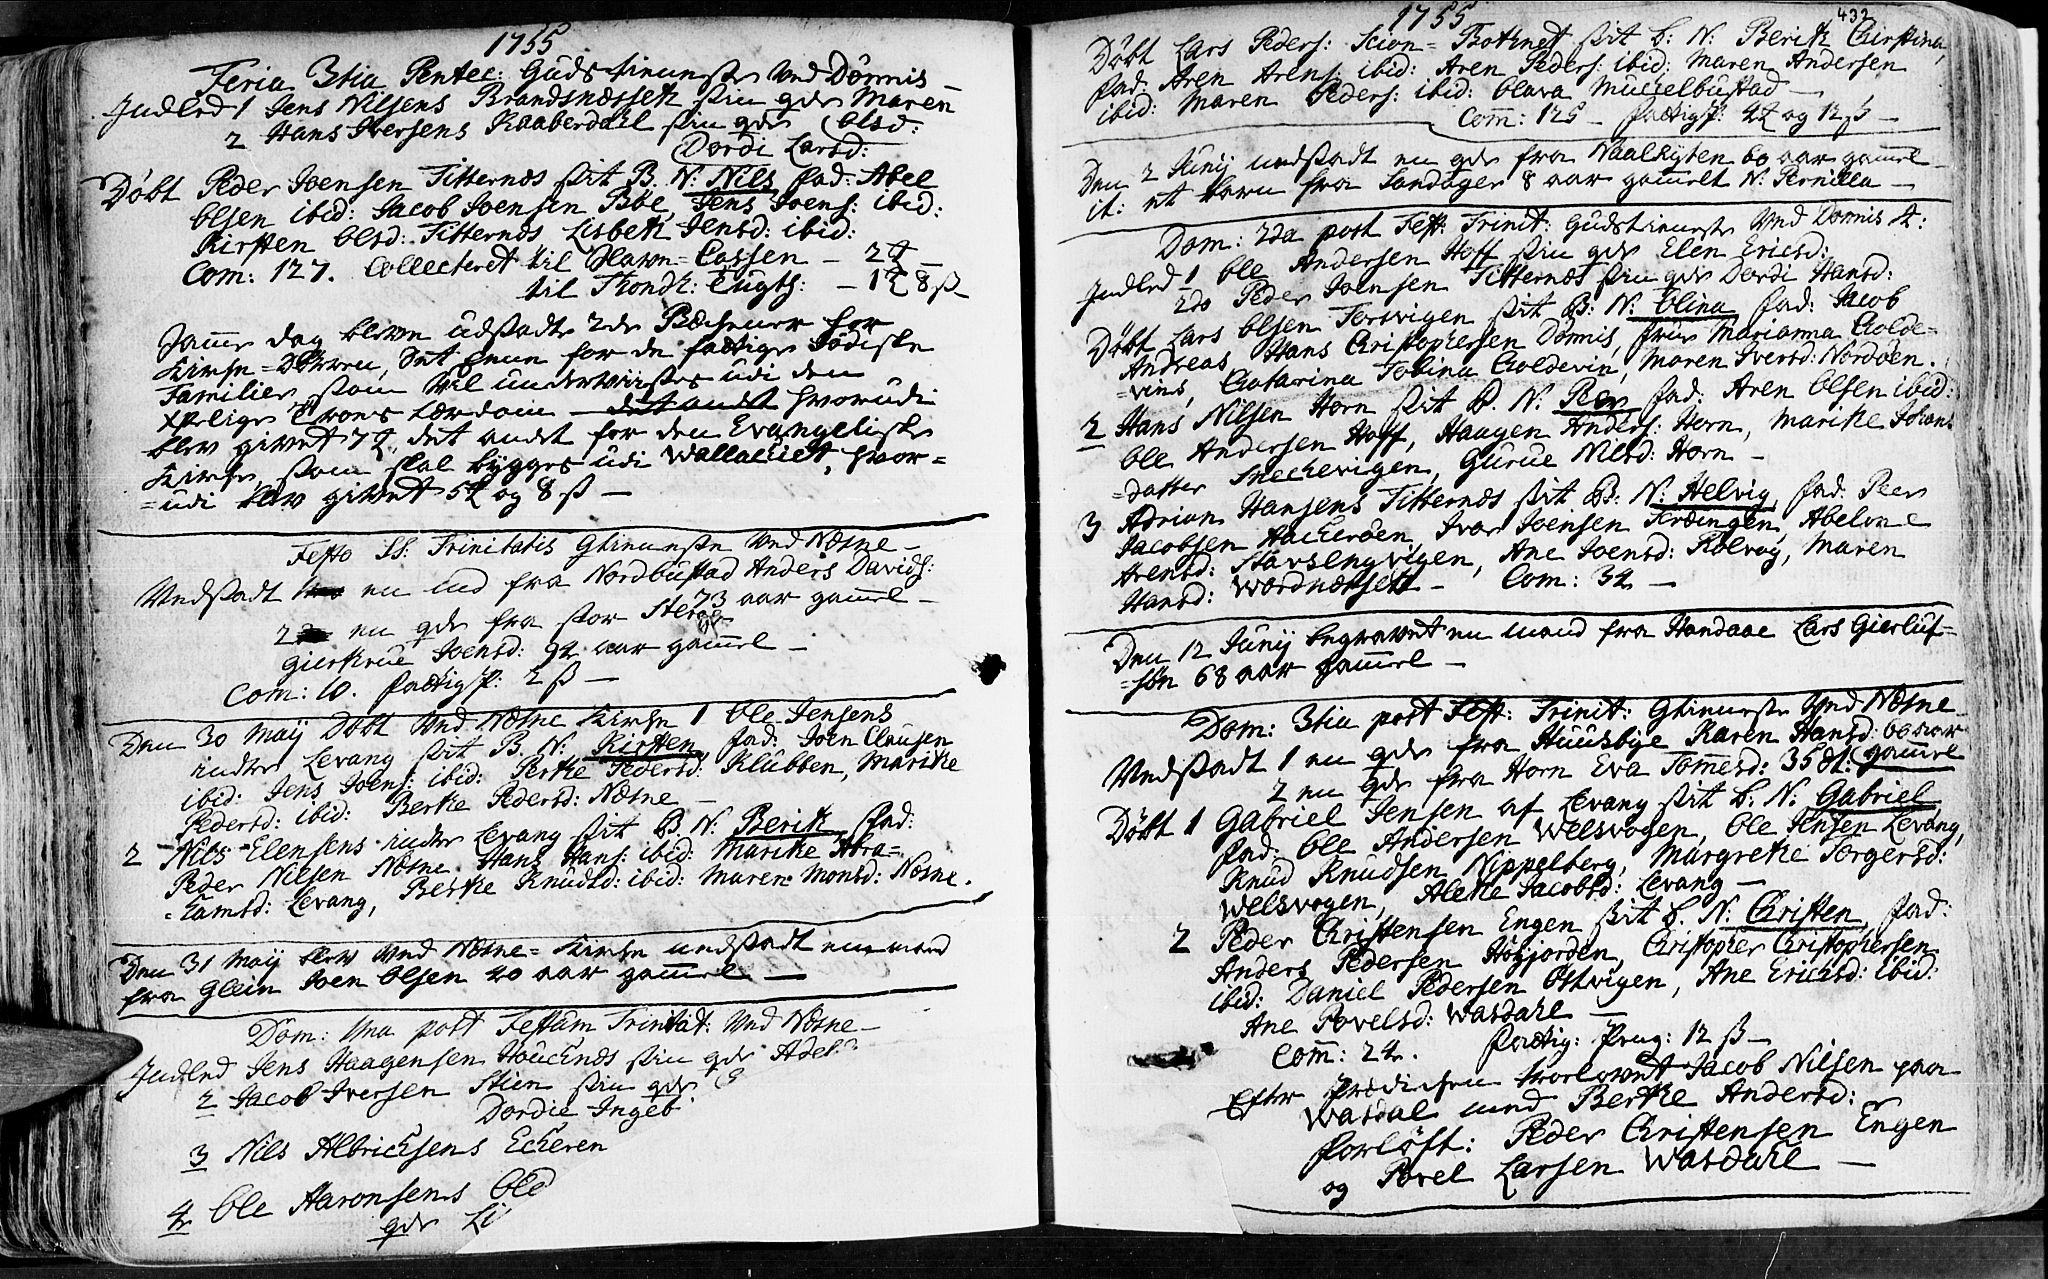 1755
Feria 3tia Pentec: Guds tieneste Ved Dønnis
Indled 1 Jens Nilsens Brandsnæsset sin qde Maren
2 Hans Iversens Raaberdahl sin qde Olsd:
Dordi Larsd:
Døbt Peder Joensen Titternæs sit B. N: Nils fad: Abel
Olsen ibid: Jacob Joensen Bøe, Jens Joens: ibid:
Kirsten Olsd: Titternæs Lisbeth Jensd: ibid:
Com: 127. Collecteret til Havn-Cassen
til Trondh: Tugth: 8 ß
Samme dag bleve udsadt 2de Bechener for
Kirke-Dørren, det Eene for de fattige Jødiske
Familier, som vil underviises udi den
Xstelige Troens Lærdom hvorudi
blev givet 7 det andet for den Evangeliske
Kirke, som skal bygges udi Wallachiet, hvor=
=udi blev givet 5 og 8 ß
Festo SS: Trinitatis Gtieneste Ved Næsne
Nedsadt en ind fra Nordbustad Anders Davids:
73 aar gammel
2 en qde fra stor
Giertrue Joensd: 92 aar gammel
Com: 10. fattigP: 2 ß
Den 30 May Døbt Ved Næsne Kirke 1 Ole Jensens
indre Levang sit B. N: Kirsten, fad: Joen Clausen
ibid: Jens Joens: ibid: Berthe Pedersd: Klubben, Marithe
Pedersd: ibid: Berthe Pedersd: Næsne
2 Nils Elensens indre Levang sit B. N: Berith fad:
Peder Nielsen Næsne, Hans Hans: ibid: Marithe Abra=
=hamsd: Levang, Berthe Knudsd: ibid: Maren Monsd: Næsne.
Den 31 May blev Ved Næsne-Kirke nedsadt en mand
fra Glein Joen Olsen 40 aar gammel
Dom: 1ma post Festum Trinitat: Ved Næsne
Indled Jens Haagensen Houchnæs sin qde Adel
2 Jacob Iversen Stien sin qde
Dordie Ingeb
3 Nils Albrichsens Echeren
4 Ole Aaronsens Ole
qde Li
1755 432
Døbt Lars Peders: Scion-Bothnet sit b: N: Berith Chirstina,
fad: Aren Arens: ibid: Aren Peders: ibid: Maren Andersen
ibid: Maren Peders: ibid: Olava Muselbustad
Com: 125 fattigP: 4 og 12 ß
Den 2 Junij nedsadt en qde fra Naalhyten 60 aar gammel
it: et barn fra Sandager 8 aar gammelt N: Pernilla
Dom: 2da post Fest: Trinit: Gudstieneste Ved Dønnis K:
Indled 1 Ole Andersen Hoff sin qde Elen Ericsd:
2do Peder Joensen Titternæs sin qde Dordi Hansd:
Døbt Lars Olsen Forvigen sit B: N: Olina fad: Jacob
Andreas Hans Christophersen Dønnis, frue Marianna Colde=
=vins, Chatarina Colderin, Maren Iversd: Nordøen.
2 Hans Nilsen Horn sit B. N. Peer fad: Aren Olsen ibid:
Ole Andersen Hoff, Haagen Anders: Horn, Marithe Johans
=datter Snechevigen, Gurue Nilsd: Horn
3 Adrian Hansens Titternæs sit B: N: Helvig, fad: Peer
Jacobsen Hacherøen, Ivar Joensen Ferdingen, Abelone
Arensd: Stavsengvigen, Ane Joensd: Rølvog, Maren
Hansd: Wordnæsset Com: 34
Den 12 Junij begravet en mand fra Handaae Lars Gierluf=
=søn 68 aar gammel
Dom: 3tia post Fest: Trinit: Gtieneste Ved Næsne
Nedsadt 1 en qde fra Huusbye Karen Hansd: 60 aar
2 en qde fra Horn Eva Tomesd: 35 gammel
Døbt 1 Gabriel Jensen af Levang sit b. N. Gabriel
fad: Ole Andersen Welsvogen, Ole Jensen Levang,
Knud Knudsen Nippelberg, Margrethe Torgersd:
Welsvogen, Alethe Jacobsd: Levang
2 Peder Christensen Engen sit b. N: Christen, fad:
Anders Pedersen Høyjorden, Christopher Christophersen
ibid: Daniel Pedersen Ostvigen, Ane Erichsd: ibid:
Ane Povelsd: Wasdahl
Com: 24. fattig: Peng: 12 ß
Efter Prædichen trorlovet Jacob Nilsen paa
Wasdal med Berthe Andersd:
Forløft: Peder Christensen Engen
og Povel Larsen Wasdahl